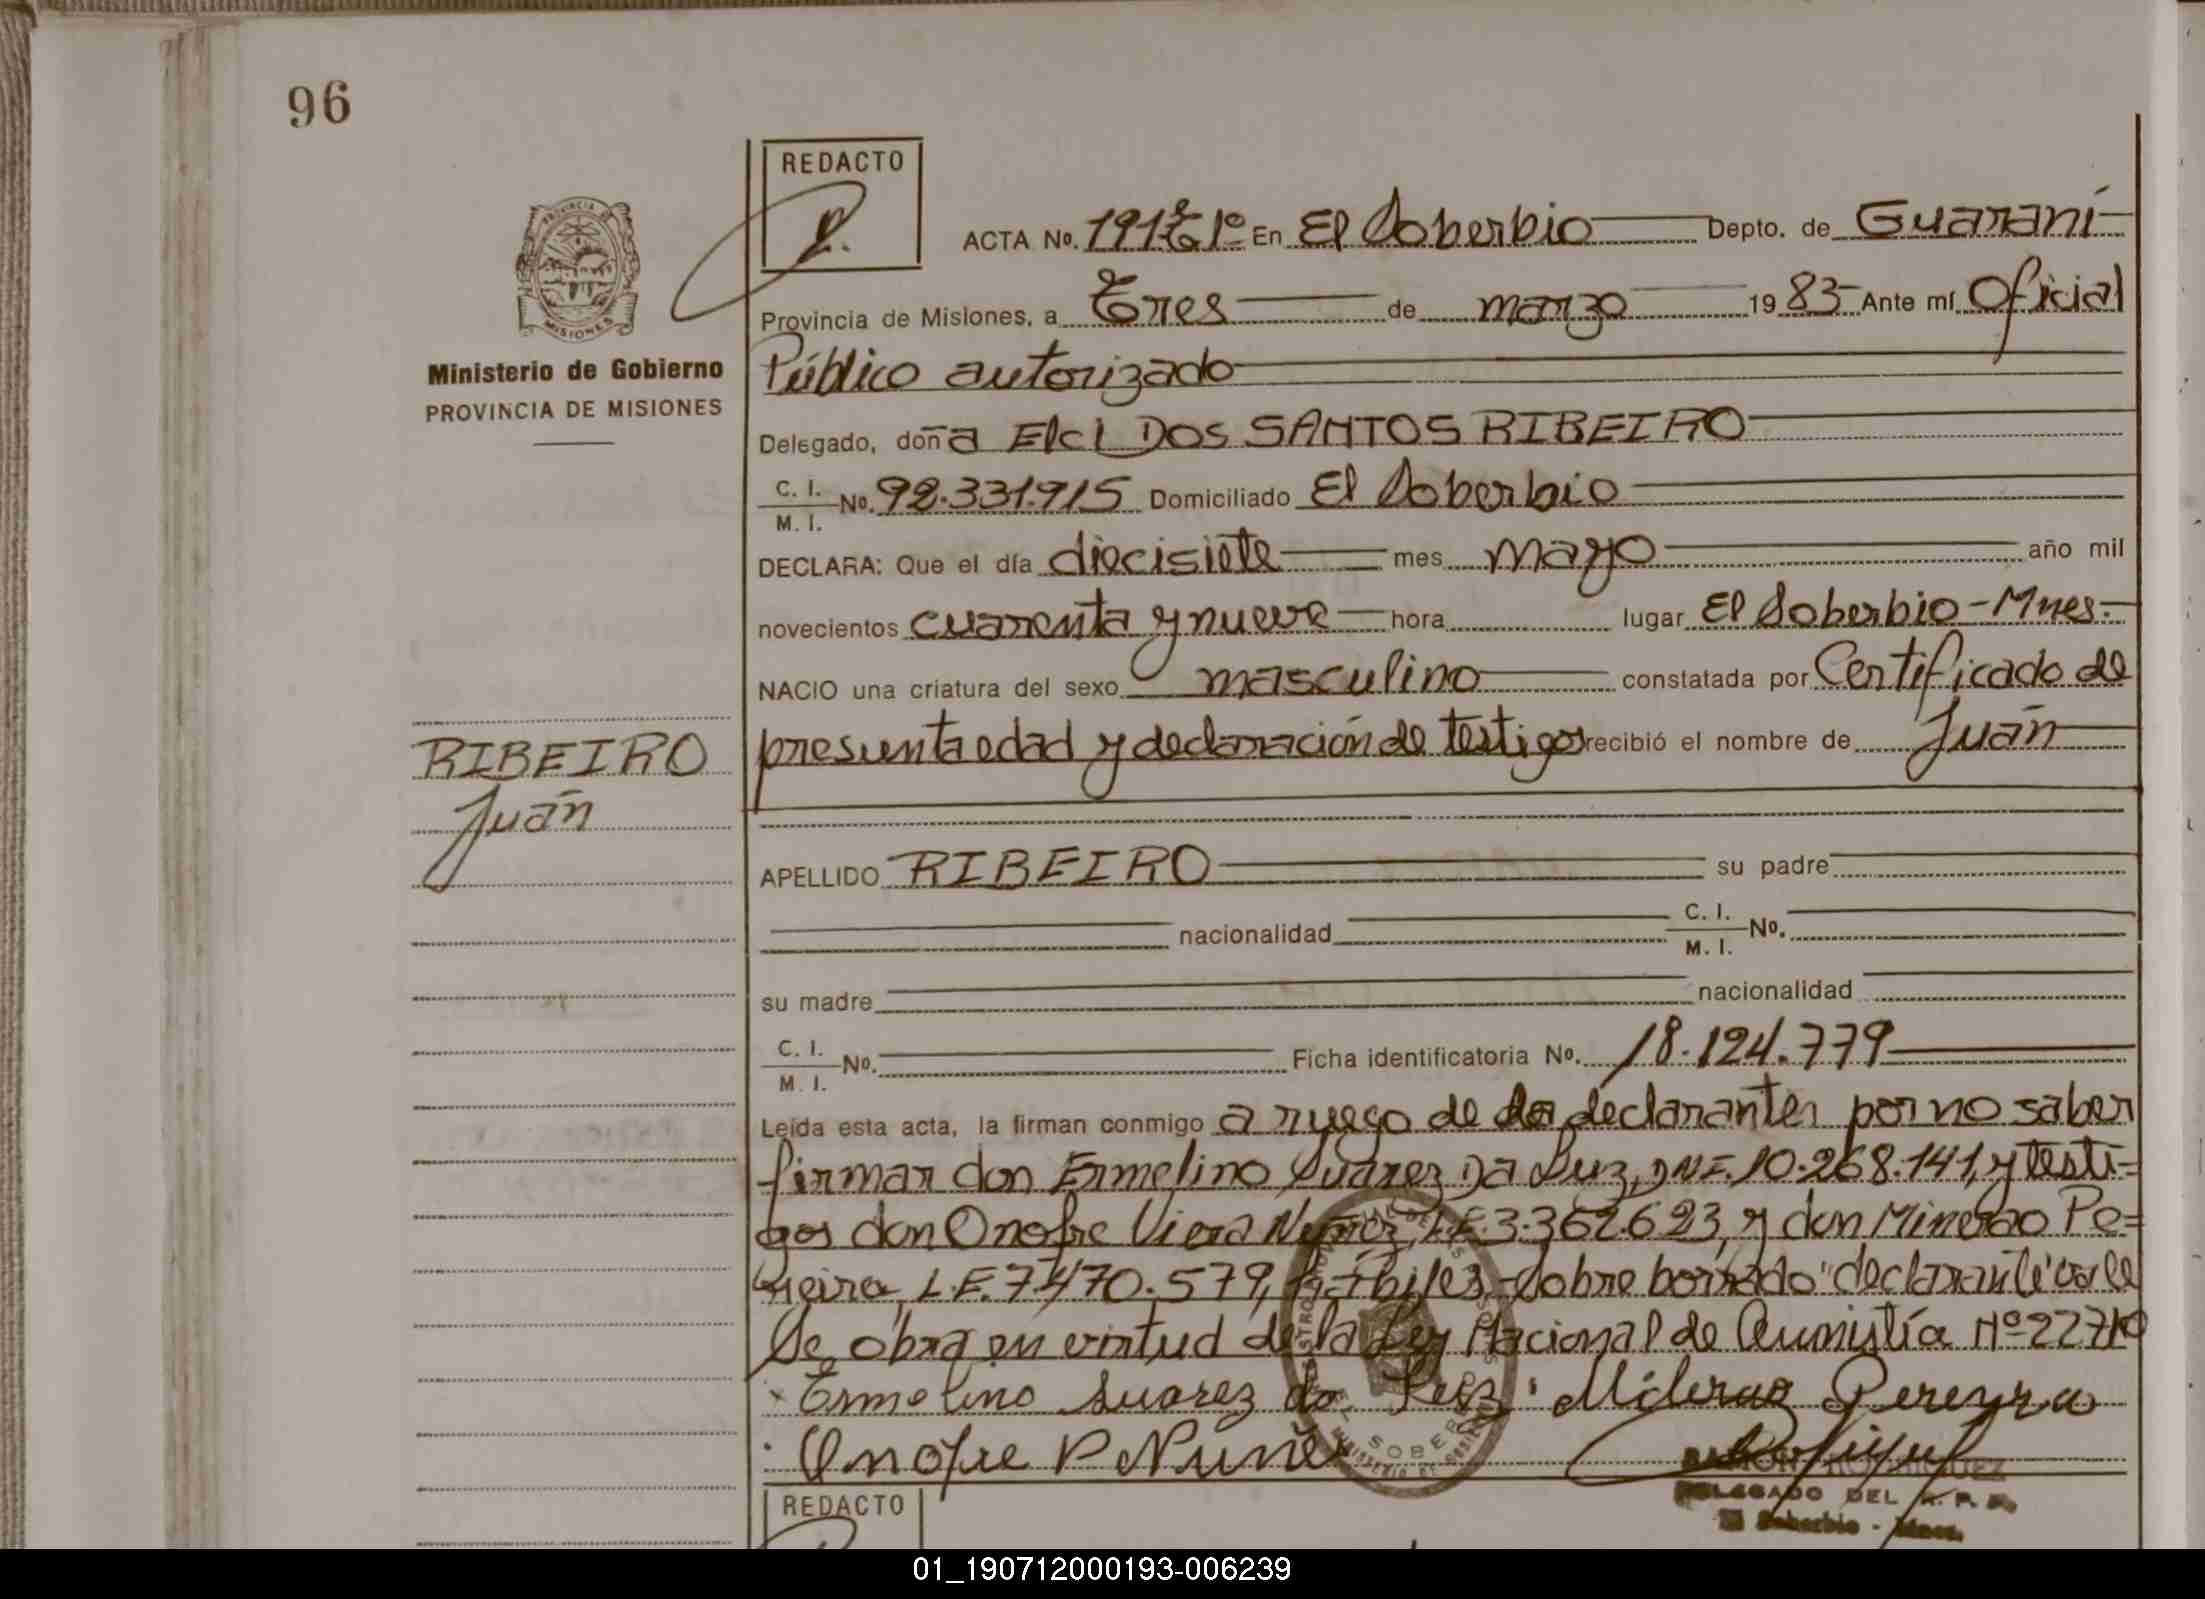 96
REDACTO
ACTA No. 191 Tº 1º En El Soberbio Depto. de Guaraní
Provincia de Misiones, a Tres de marzo 1983 Ante mí Oficial
Público autorizado
Ministerio de Gobierno
PROVINCIA DE MISIONES
Delegado, doña Elci DOS SANTOS RIBEIRO
C. I.
M. I. No. 92.331.915 Domiciliado El Soberbio
DECLARA: Que el día diecisiete mes mayo año mil
novecientos cuarenta y nueve hora lugar El Soberbio - Mnes.
NACIO una criatura del sexo masculino constatada por Certificado de
presunta edad y declaración de testigos recibió el nombre de Juán
RIBEIRO
Juán
APELLIDO RIBEIRO su padre
nacionalidad C. I.
M. I. No.
su madre nacionalidad
C. I.
M. I. No. Ficha identificatoria No. 18.124.779
Leída esta acta, la firman conmigo a ruego de declarante por no saber
firmar don Ermelino Suarez Da Luz, DNI. 10.268.141, y testi=
gos don Onofre Viera Nuñez, L.E. 3.362.623, y don Minerao Pe=
reira, L.E. 7.470.579, hábiles. Sobre borrado "declarante" vale
Se obra en virtud de la Ley Nacional de Amnistía Nº 22710
Ermelino Suarez da Luz Milerao Pereyra
Onofre V Nuñez
RAMON RODRIGUEZ
DELEGADO DEL R. P. P.
El Soberbio - Mnes.
REDACTO
01_190712000193-006239